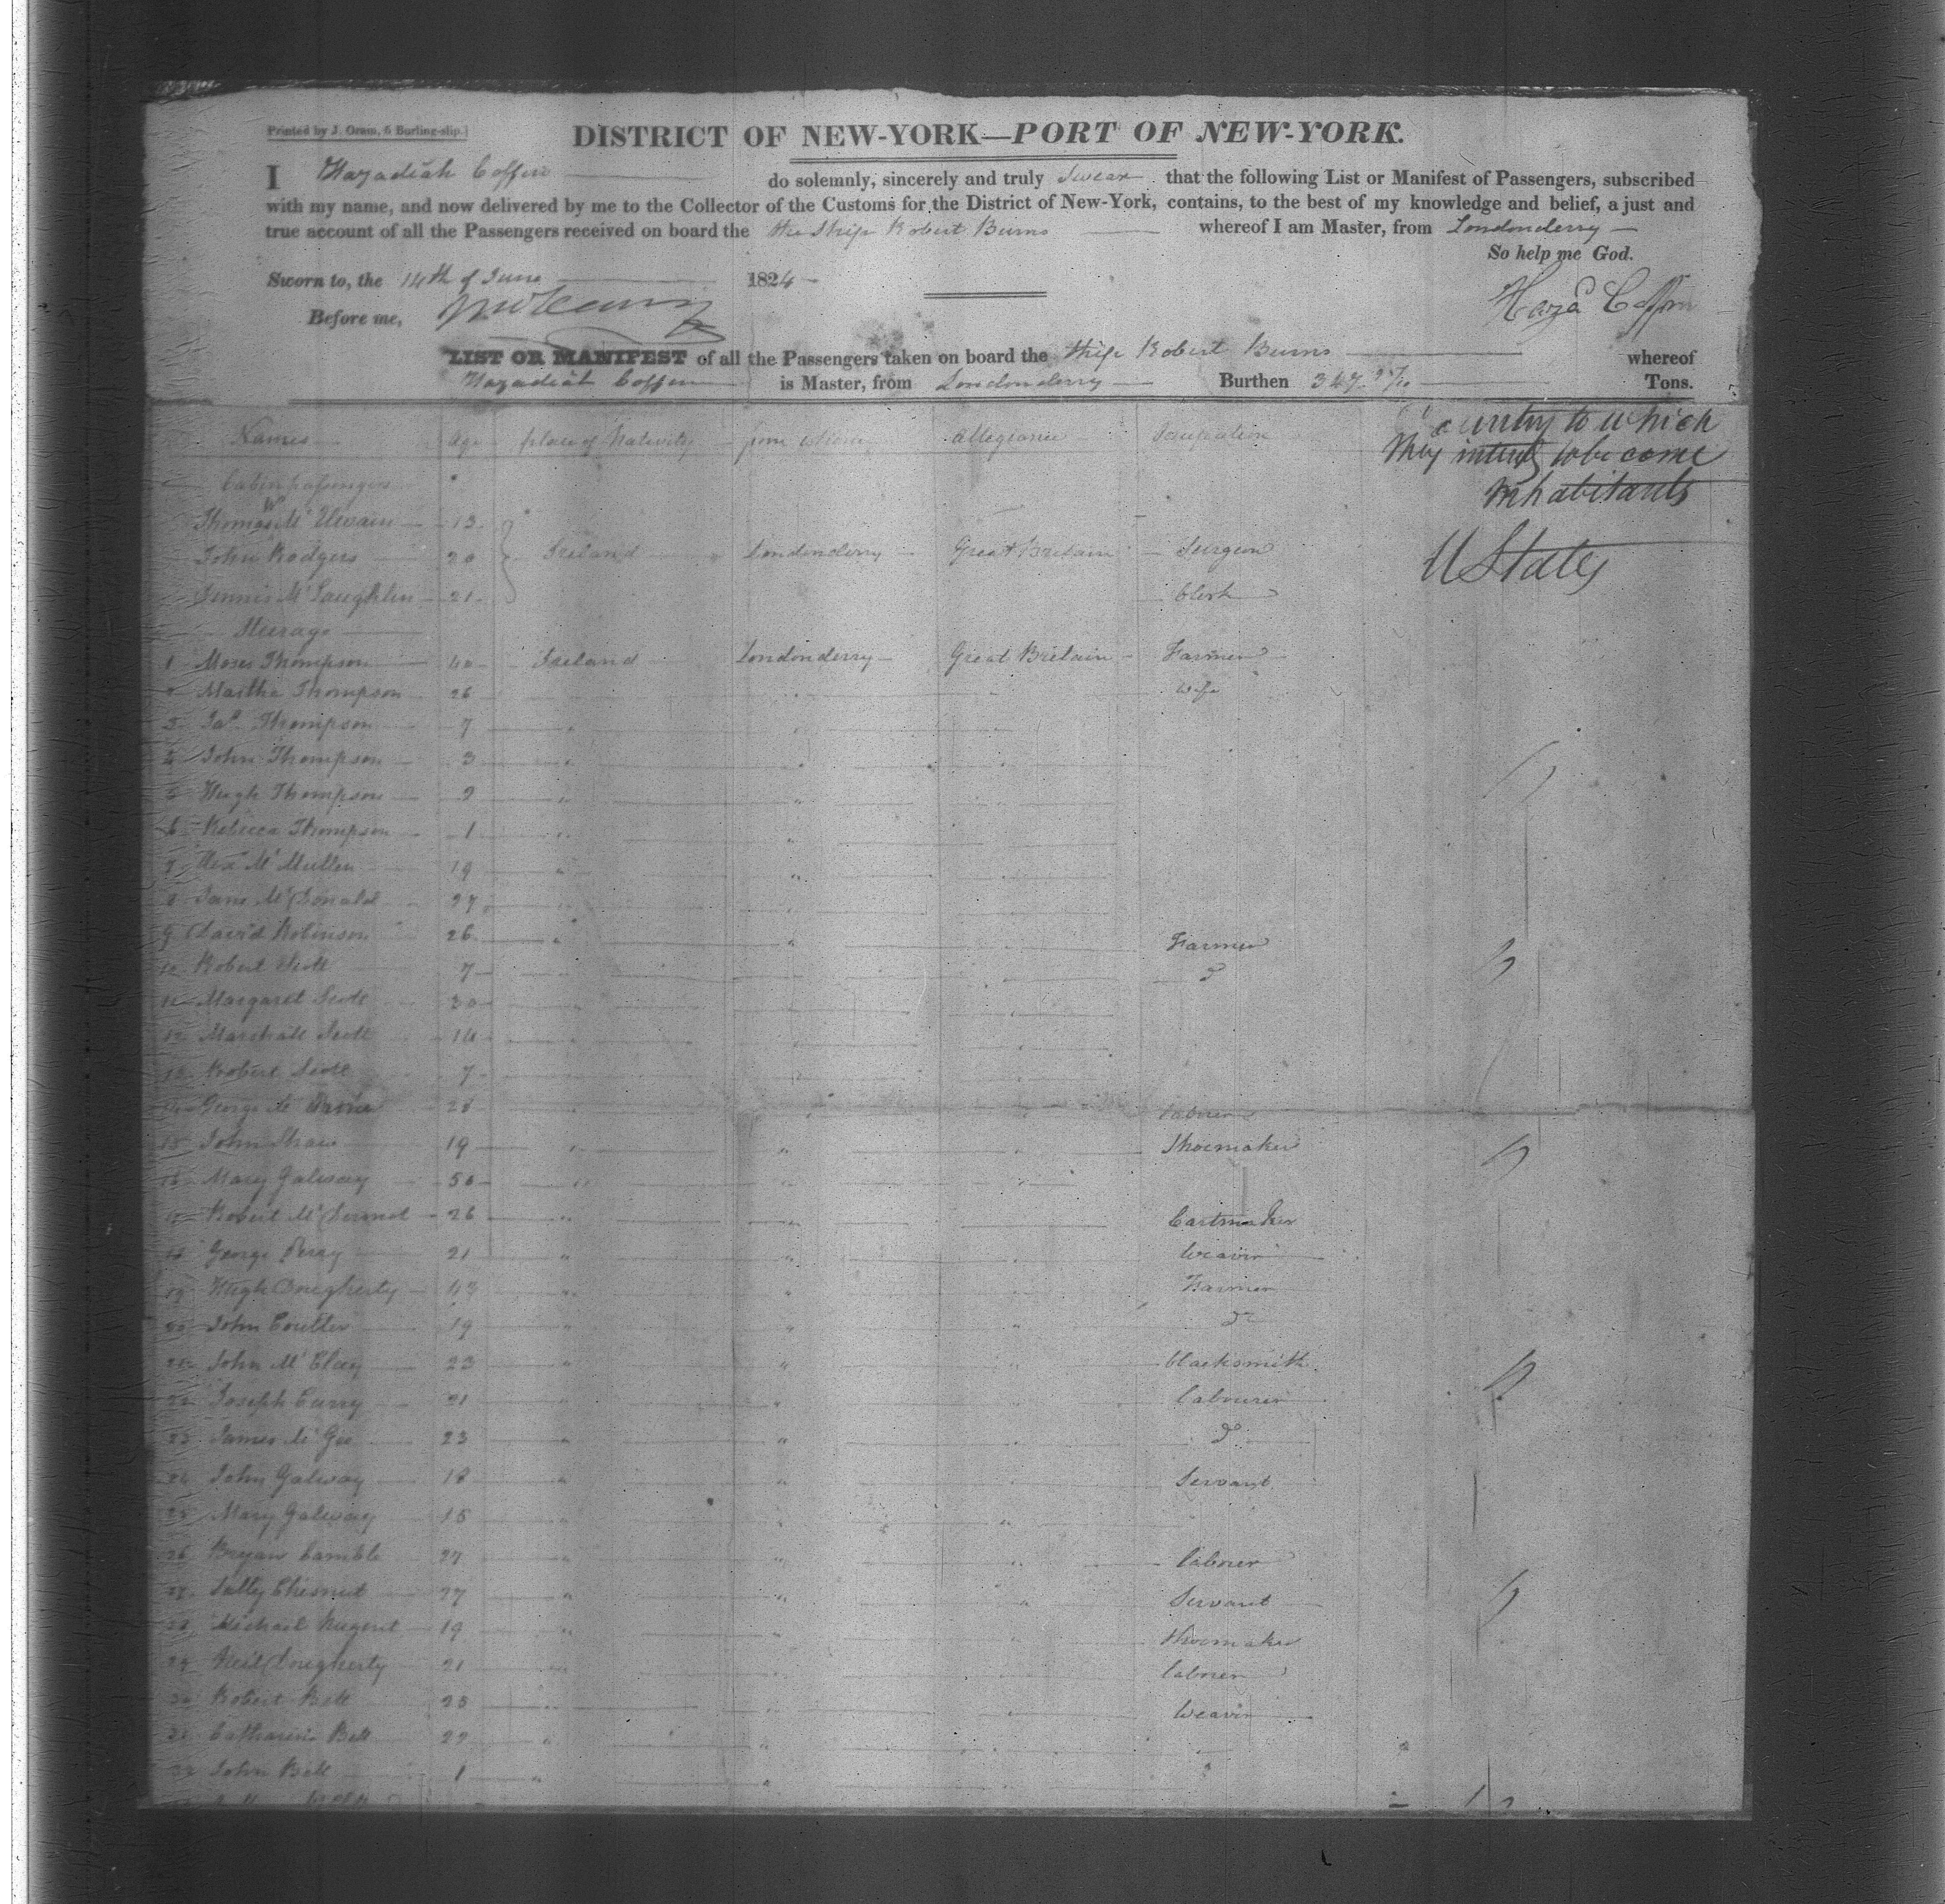 Printed by J. Oram, 6 Burling-slip.
DISTRICT OF NEW-YORK—PORT OF NEW-YORK.
I Hazadiah Coffin do solemnly, sincerely and truly Swear that the following List or Manifest of Passengers, subscribed
with my name, and now delivered by me to the Collector of the Customs for the District of New-York, contains, to the best of my knowledge and belief, a just and
true account of all the Passengers received on board the the Ship Robert Burns whereof I am Master, from Londonderry
So help me God.
Sworn to, the 14th of June 1824
Before me,
Hazd Coffin
LIST OR MANIFEST of all the Passengers taken on board the Ship Robert Burns whereof
Hazadiah Coffin is Master, from Londonderry Burthen 347 Tons.
Names Age place of Nativity from whence Allegiance Occupation Country to which
they intend to become
inhabitants
Cabin passengers
Thomas McIlwain 13
John Rodgers 20 Ireland Londonderry Great Britain Surgeon U States
Dennis McLaughlin 21 Clerk
Steerage
1 Moses Thompson 40 Ireland Londonderry Great Britain Farmer
2 Martha Thompson 26 " " wife
3 Jas. Thompson 7 " "
4 John Thompson 3 " "
5 Hugh Thompson 9 " "
6 Rebecca Thompson 1 " "
7 Alexr McMullen 19 " "
8 Jane McDonald 27 " "
9 David Robinson 26 " " Farmer
10 Robert Scott 7 " " Do
11 Margaret Scott 30 " "
12 Marshall Scott 14 " "
13 Robert Scott 7 " "
14 George 28 " " laborer
15 John Shaw 19 " " " Shoemaker
16 Mary Galway 50 " " "
17 Robert McDermot 26 " " " Cartmaker
18 George Peray 21 " " " Weaver
19 Hugh Dougherty 43 " " " Farmer
20 John Coulter 19 " " " Do
21 John McClay 23 " " " blacksmith
22 Joseph Curry 21 " " " labourer
23 James McGee 23 " " " Do
24 John Galway 18 " " " Servant
25 Mary Galway 15 " " "
26 Bryan Camble 27 " " " laborer
27 Sally Chesnut 27 " " " Servant
28 Michael Nugent 19 " " " Shoemaker
29 Neil Dougherty 21 " " " laborer
30 Robert Bell 25 " " " Weaver
31 Catharine Bell 22 " " "
32 John Bell 1 " "